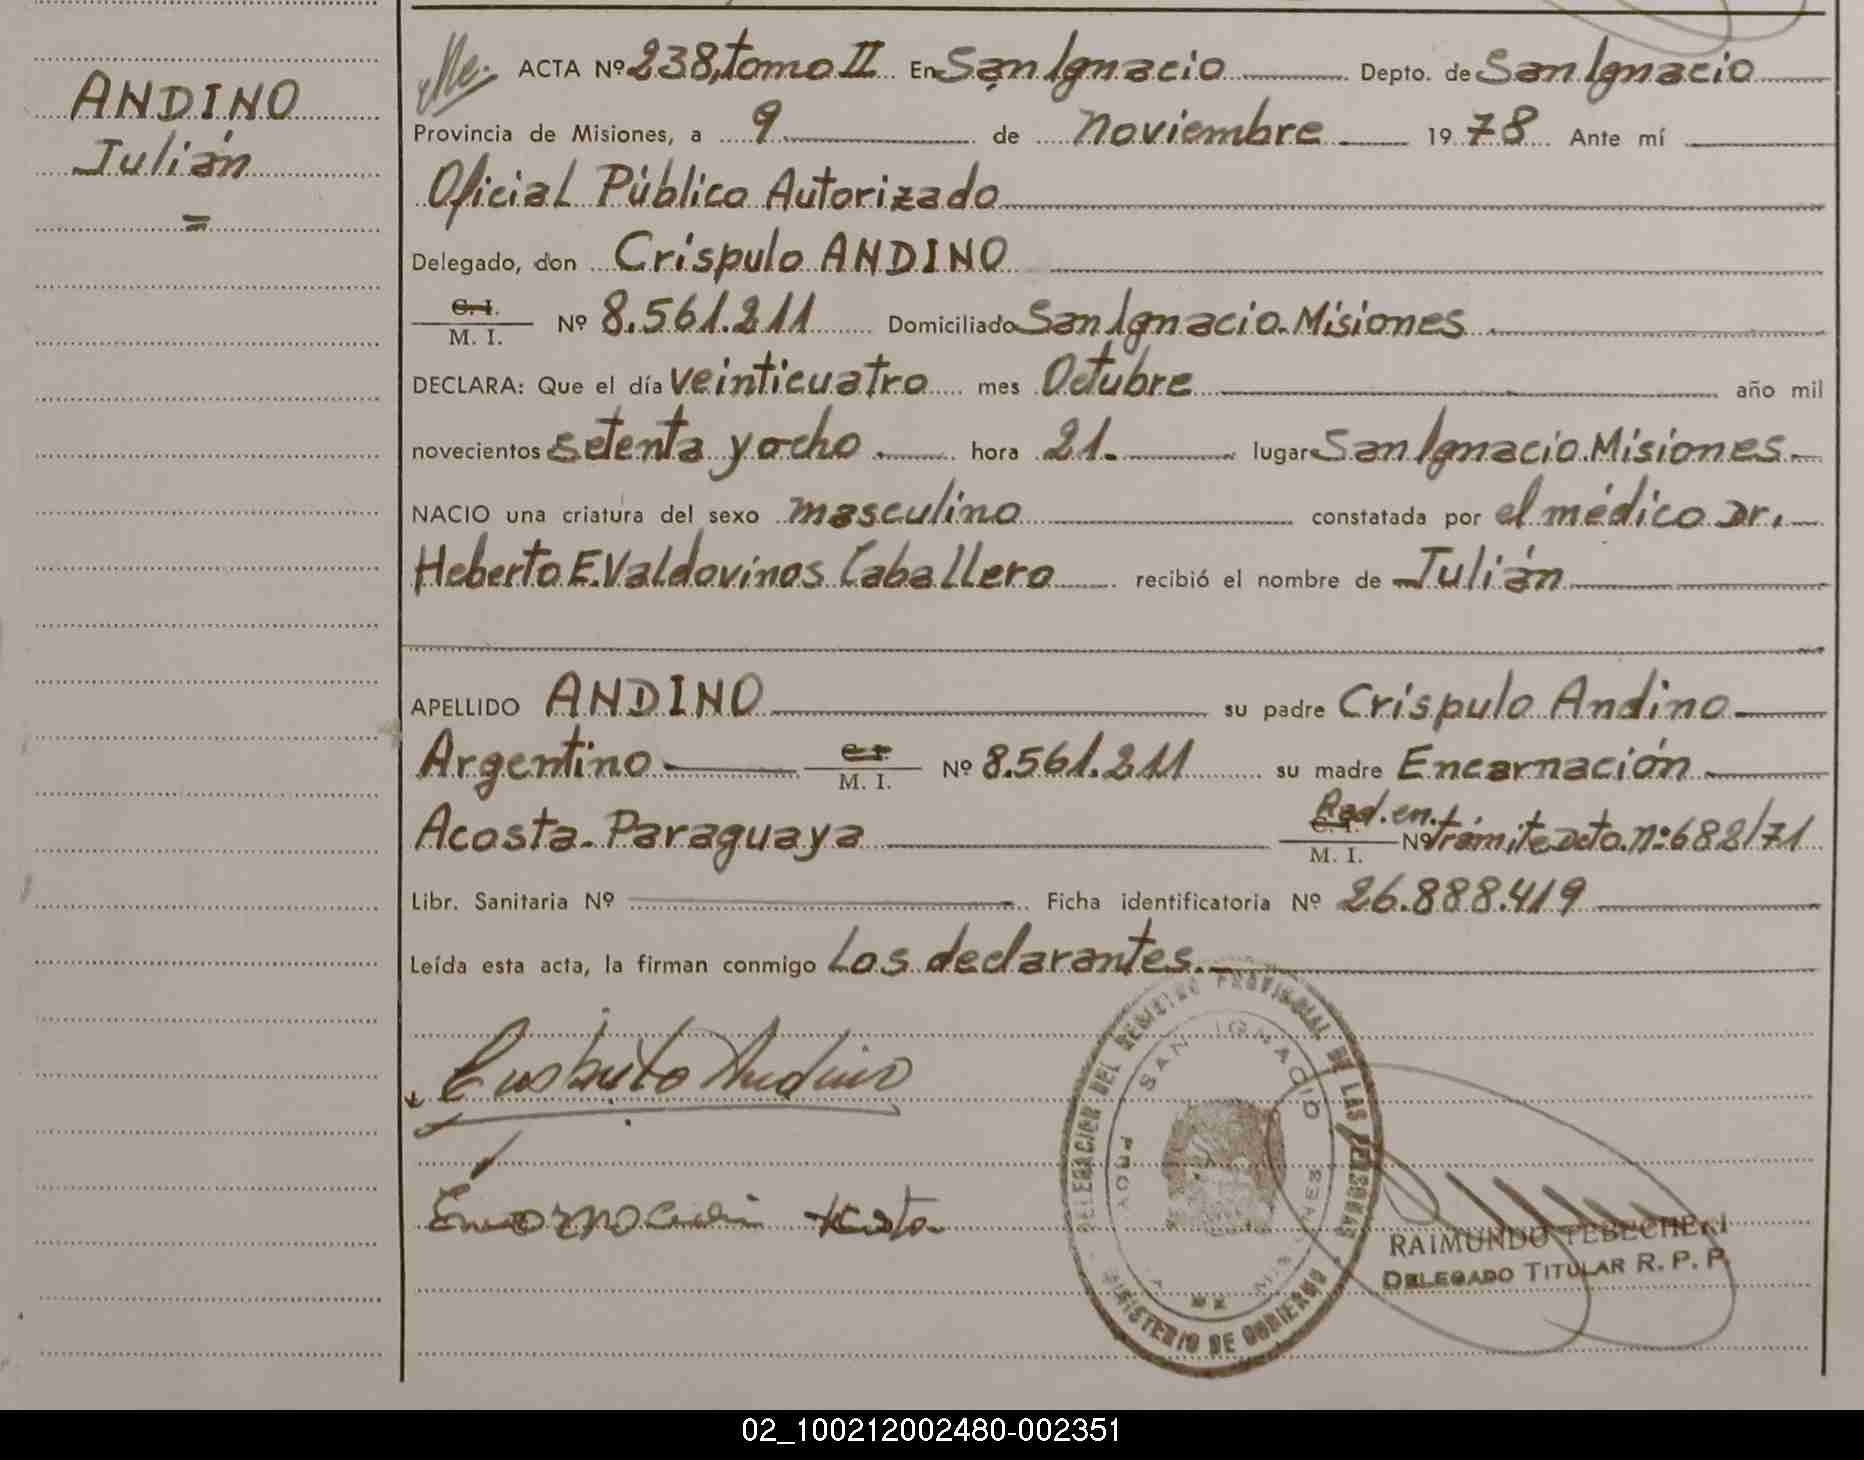 ANDINO
Julián
=
ACTA Nº 238, tomo II En San Ignacio Depto. de San Ignacio
Provincia de Misiones, a 9 de noviembre 1978 Ante mí
Oficial Público Autorizado
Delegado, don Críspulo ANDINO
C. I.
M. I. Nº 8.561.211 Domiciliado San Ignacio. Misiones
DECLARA: Que el día veinticuatro mes Octubre año mil
novecientos setenta y ocho hora 21. lugar San Ignacio. Misiones.
NACIO una criatura del sexo masculino constatada por el médico Dr.
Heberto E. Valdovinos Caballero recibió el nombre de Julián
APELLIDO ANDINO su padre Críspulo Andino
Argentino C. I. M. I. Nº 8.561.211 su madre Encarnación
Acosta. Paraguaya C. I. M. I. Nº Rad. en trámite Dcto. nº 688/71
Libr. Sanitaria Nº Ficha identificatoria Nº 26.888.419
Leída esta acta, la firman conmigo los declarantes.
Andino
DELEGACION DEL REGISTRO PROVINCIAL DE LAS PERSONAS
SAN IGNACIO
MINISTERIO DE GOBIERNO
RAIMUNDO TEBECHERI
DELEGADO TITULAR R. P. P.
02_100212002480-002351